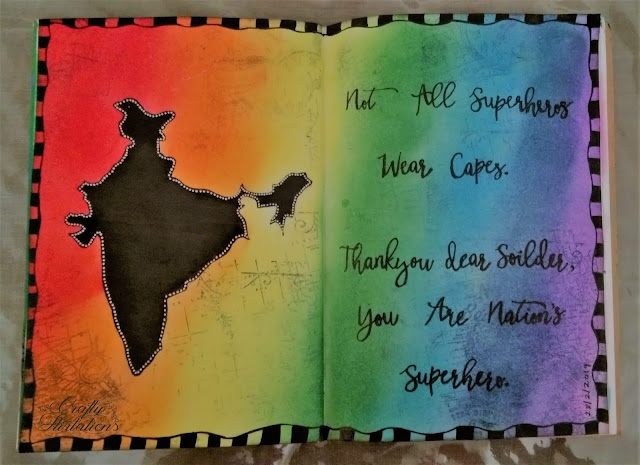 Not All Superheros
Wear Capes.
Thankyou dear Soilder,
You Are Nation's
Superhero.
Crafty